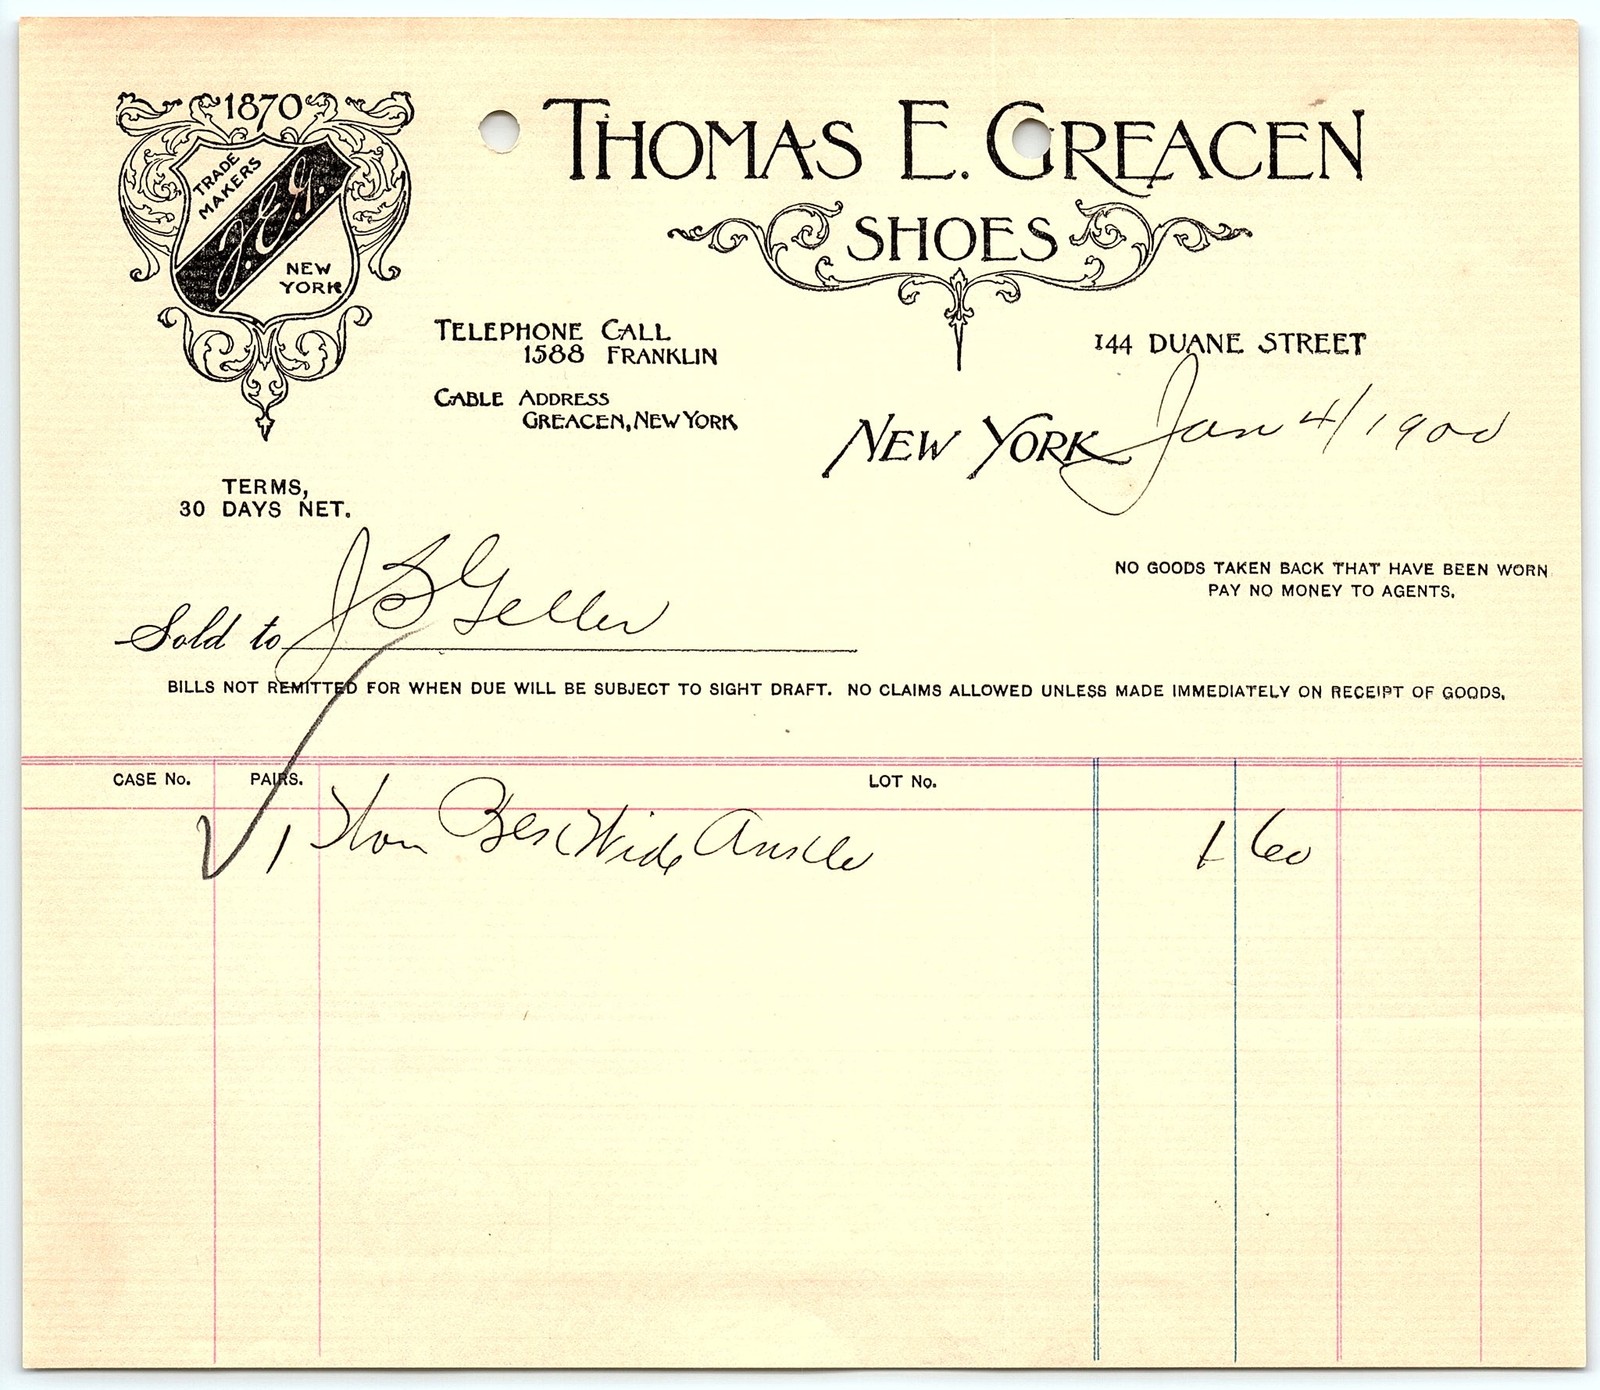 1870
TRADE
MAKERS
T.E.G.
NEW
YORK
THOMAS E. GREACEN
SHOES
TELEPHONE CALL
1588 FRANKLIN
144 DUANE STREET
CABLE ADDRESS
GREACEN, NEW YORK
NEW YORK Jan 4/1900
TERMS,
30 DAYS NET.
NO GOODS TAKEN BACK THAT HAVE BEEN WORN
PAY NO MONEY TO AGENTS.
Sold to J B Geller
BILLS NOT REMITTED FOR WHEN DUE WILL BE SUBJECT TO SIGHT DRAFT. NO CLAIMS ALLOWED UNLESS MADE IMMEDIATELY ON RECEIPT OF GOODS.
CASE No. PAIRS. LOT No.
1 Wide 1 60